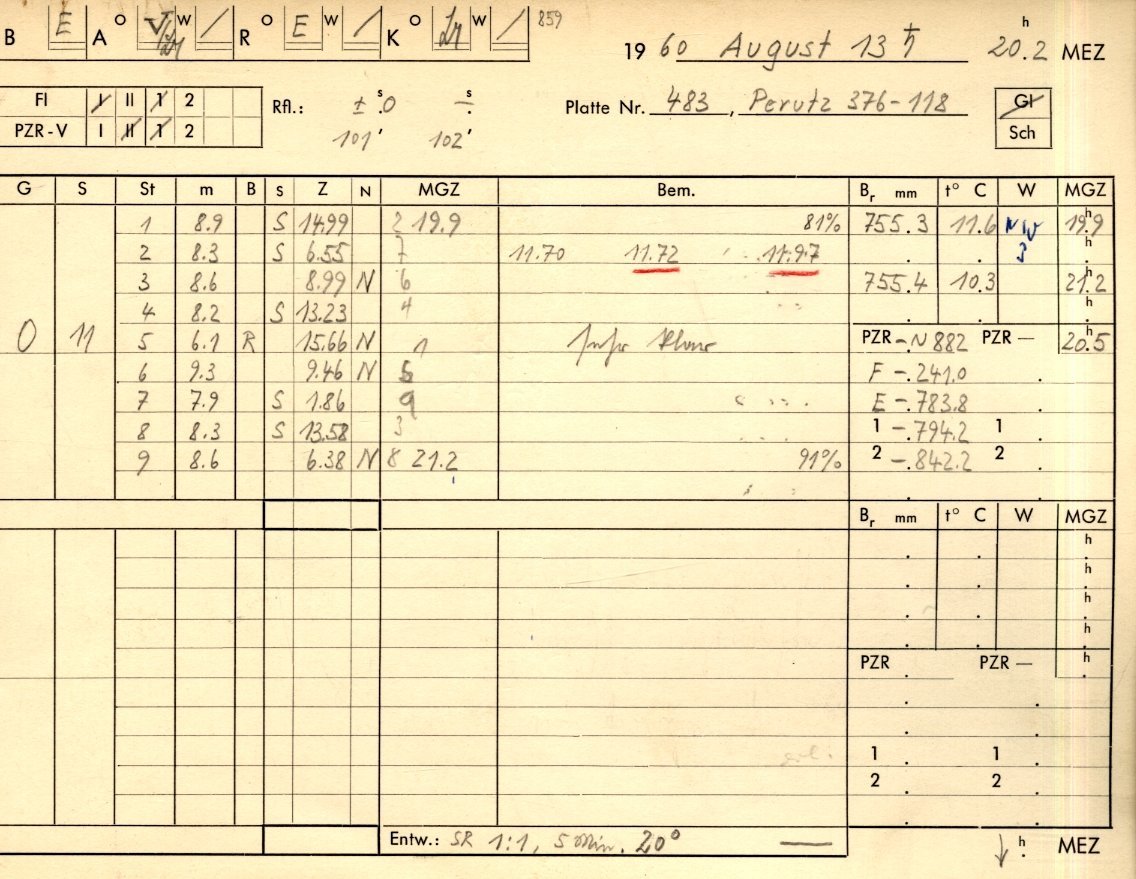 B E A O V W / R O E W / K O Lr W / 859
19 60 August 13 ♄ 20.2 h MEZ
FI I II 1 2 Rfl.: ± s.0 − s. Platte Nr. 483, Perutz 376-118 Gl
PZR-V I II 1 2 101' 102' Sch
G S St m B S Z N MGZ Bem. Br mm t° C W MGZ
1 8.9 S 14.99 2 19.9 81% 755.3 11.6 NW 19.9 h
2 8.3 S 6.55 7 11.70 11.72 11.97 . . 3 h
3 8.6 8.99 N 6 755.4 10.3 21.2 h
4 8.2 S 13.23 4 . . h
0 11 5 6.1 R 15.66 N 1 PZR-N 882 PZR — 20.5 h
6 9.3 9.46 N 5 F -.241.0 .
7 7.9 S 1.86 9 E -.783.8
8 8.3 S 13.58 3 1 -.794.2 1 .
9 8.6 6.38 N 8 21.2 91% 2 -.842.2 2 .
Br mm t° C W MGZ
. . h
. . h
. . h
. . h
PZR PZR — h
1 . 1 .
2 . 2 .
Entw.: SR 1:1, 5 Min. 20° — ↓ h. MEZ